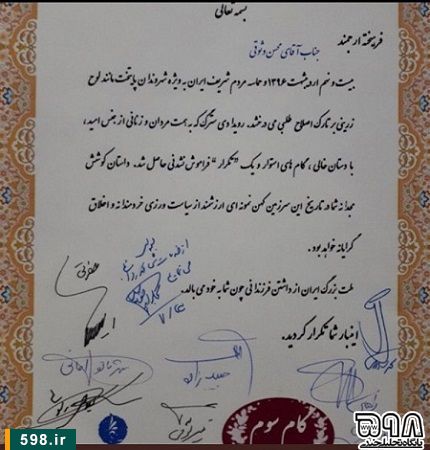 بسمه تعالی
فرهیخته ارجمند
جناب آقای محسن وثوقی
بیست و نهم اردیبهشت ۱۳۹۶ و حماسه مردم شریف ایران به ویژه شهروندان پایتخت مانند لوح
زرینی بر تارک اصلاح طلبی می درخشد. رویدادی سترگ که به همت مردان و زنانی از جنس امید،
با دستان خالی، گام های استوار و یک "تکرار" فراموش نشدنی حاصل شد. داستان کوشش
مجدانه شما در تاریخ این سرزمین کهن نمونه ای ارزشمند از سیاست ورزی خردمندانه و اخلاق
گرایانه خواهد بود.
ملت بزرگ ایران از داشتن فرزندانی چون شما به خود می بالد.
اینبار شما تکرار کردید.
گام سوم
598.ir
۵۹۸
پایگاه تحلیلی خبری